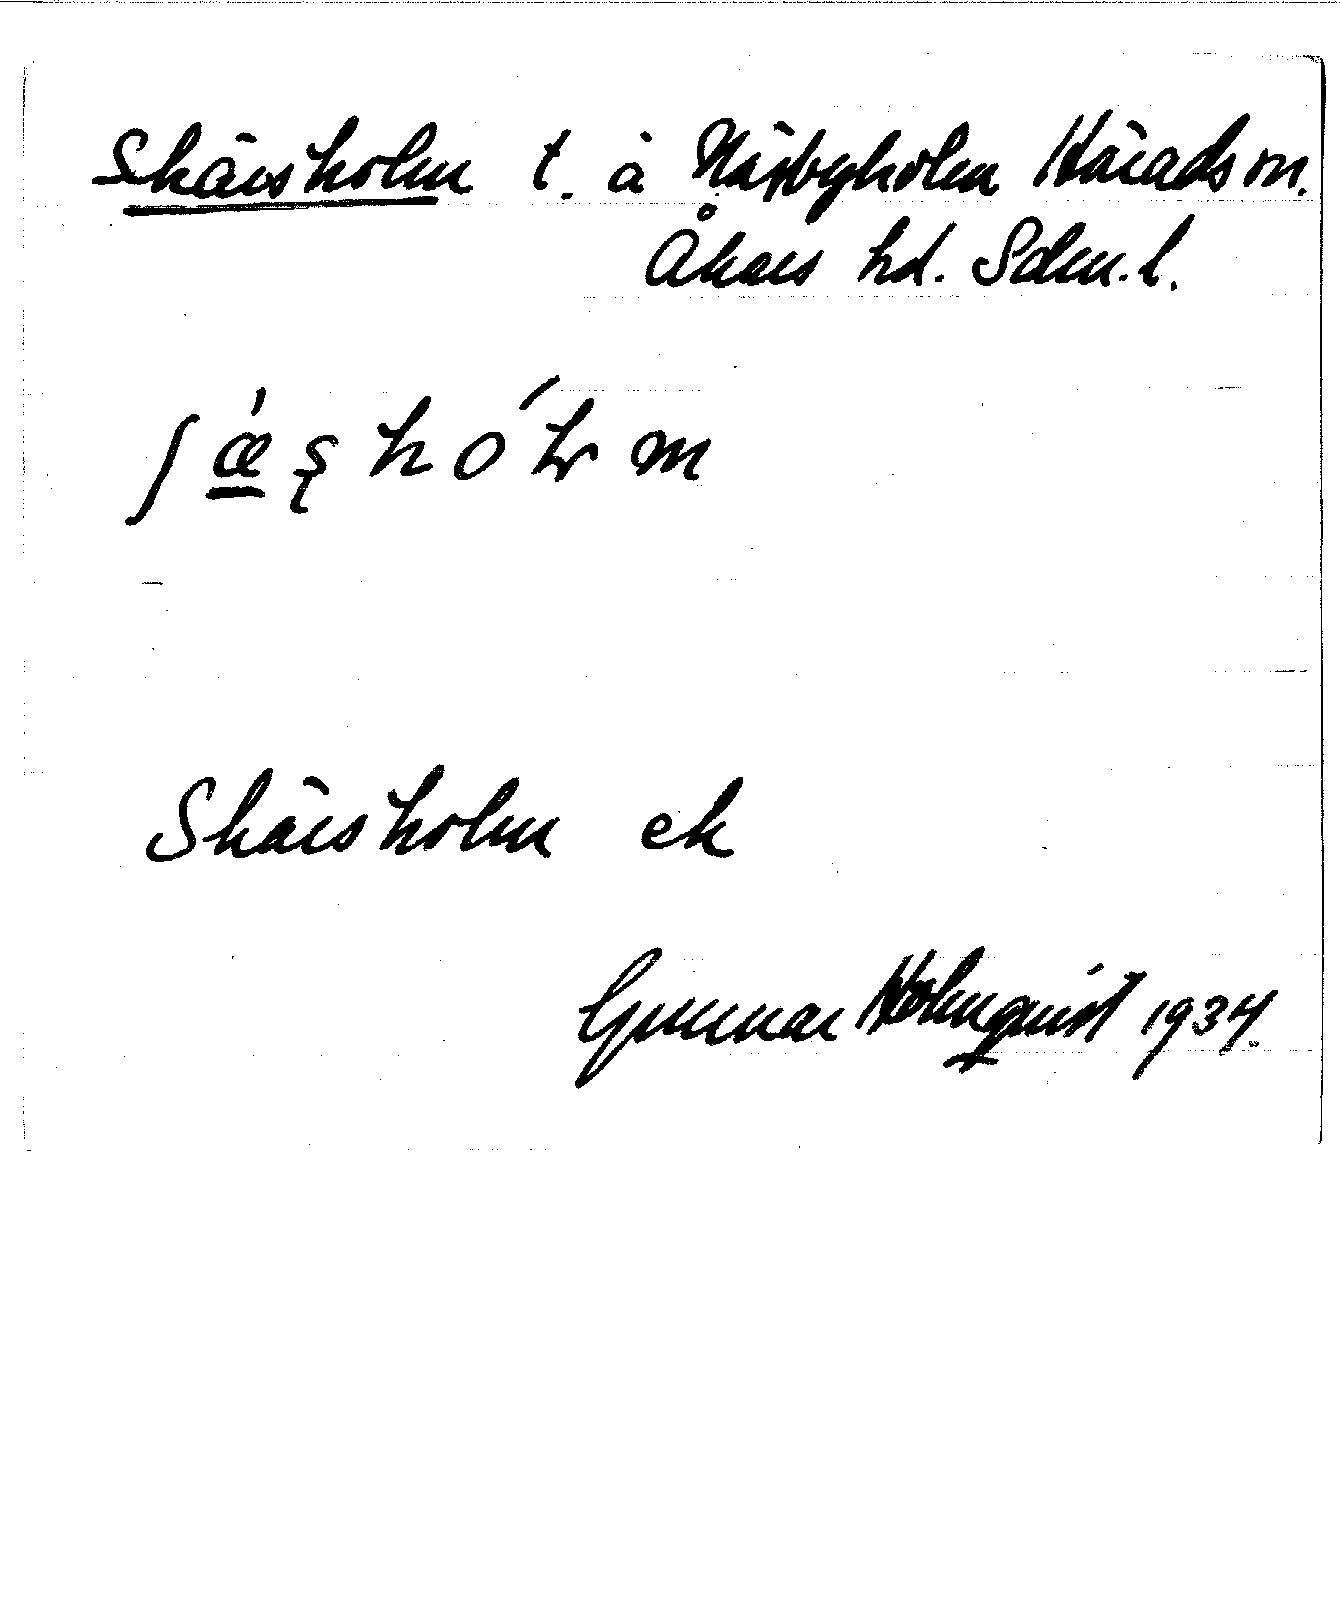 Skärsholm t. å Näsbyholm Härads sn.
Åkers hd. Sdm. l.
Skärsholm ek
Gunnar Holmquist 1934.